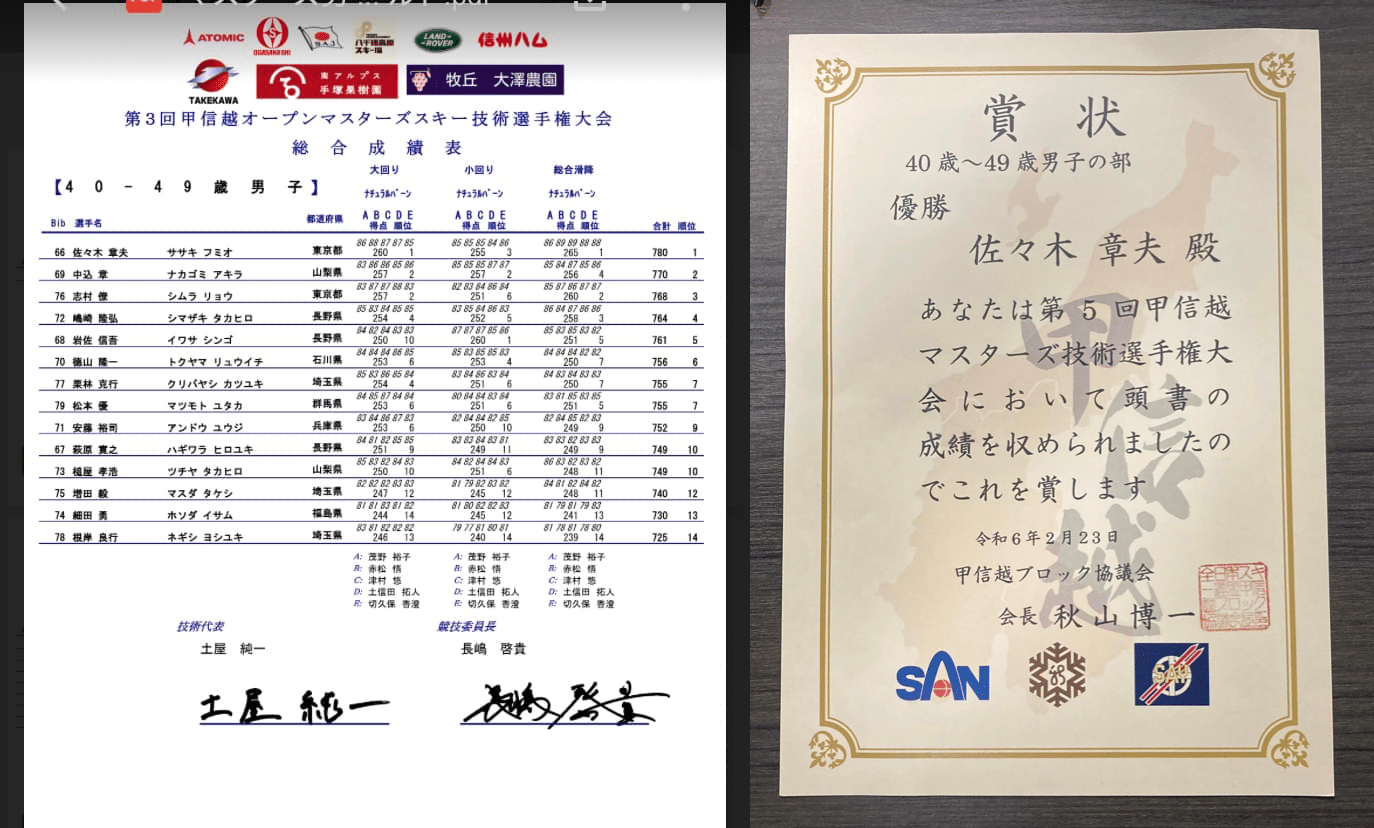 ATOMIC
OGASAKA SKI
S.A.J.
八千穂高原
スキー場
LAND-
ROVER
信州ハム
TAKEKAWA
南アルプス
手塚果樹園
牧丘 大澤農園
第3回甲信越オープンマスターズスキー技術選手権大会
総 合 成 績 表
大回り 小回り 総合滑降
【4 0 - 4 9 歳 男 子】 ナチュラルバーン ナチュラルバーン ナチュラルバーン
A B C D E A B C D E A B C D E
Bib 選手名 都道府県 得点 順位 得点 順位 得点 順位 合計 順位
86 88 87 87 85 85 85 85 84 86 86 89 89 88 88
66 佐々木 章夫 ササキ フミオ 東京都 260 1 255 3 265 1 780 1
83 86 86 85 86 85 85 85 87 87 85 84 87 85 86
69 中込 章 ナカゴミ アキラ 山梨県 257 2 257 2 256 4 770 2
83 87 87 88 83 82 83 84 86 84 85 87 86 87 87
76 志村 僚 シムラ リョウ 東京都 257 2 251 6 260 2 768 3
85 83 84 85 85 83 85 84 86 83 86 84 87 86 86
72 嶋崎 隆弘 シマザキ タカヒロ 長野県 254 4 252 5 258 3 764 4
84 82 84 83 83 87 87 87 85 86 85 83 85 83 82
68 岩佐 信吾 イワサ シンゴ 長野県 250 10 260 1 251 5 761 5
84 84 84 86 85 85 83 85 85 83 84 84 84 82 82
70 徳山 隆一 トクヤマ リュウイチ 石川県 253 6 253 4 250 7 756 6
85 83 86 85 84 83 84 86 83 84 84 83 84 83 83
77 栗林 克行 クリバヤシ カツユキ 埼玉県 254 4 251 6 250 7 755 7
84 85 87 84 84 80 84 84 83 84 83 81 85 83 85
79 松本 優 マツモト ユタカ 群馬県 253 6 251 6 251 5 755 7
83 84 86 87 83 82 84 84 82 85 82 84 85 82 83
71 安藤 裕司 アンドウ ユウジ 兵庫県 253 6 250 10 249 9 752 9
84 81 82 85 85 83 83 84 83 81 83 83 82 83 83
67 萩原 寛之 ハギワラ ヒロユキ 長野県 251 9 249 11 249 9 749 10
85 83 82 84 83 84 82 84 84 83 86 83 82 83 82
73 槌屋 孝浩 ツチヤ タカヒロ 山梨県 250 10 251 6 248 11 749 10
82 82 82 83 83 81 79 82 82 83 84 81 82 84 82
75 増田 毅 マスダ タケシ 埼玉県 247 12 245 12 248 11 740 12
81 81 83 81 82 81 80 82 82 83 81 79 81 79 83
74 細田 勇 ホソダ イサム 福島県 244 14 245 12 241 13 730 13
83 81 82 82 82 79 77 81 80 81 81 78 81 78 80
78 根岸 良行 ネギシ ヨシユキ 埼玉県 246 13 240 14 239 14 725 14
A: 茂野 裕子 A: 茂野 裕子 A: 茂野 裕子
B: 赤松 悟 B: 赤松 悟 B: 赤松 悟
C: 津村 悠 C: 津村 悠 C: 津村 悠
D: 土信田 拓人 D: 土信田 拓人 D: 土信田 拓人
E: 切久保 香澄 E: 切久保 香澄 E: 切久保 香澄
技術代表 競技委員長
土屋 純一 長嶋 啓貴
土屋 純一 長嶋 啓貴
賞 状
40歳～49歳男子の部
優勝
佐々木 章夫 殿
あなたは第 5 回甲信越
マスターズ技術選手権大
会において頭書の
成績を収められましたの
でこれを賞します
令和6年2月23日
甲信越ブロック協議会
会長 秋山博一
甲信越
SAN
SAY